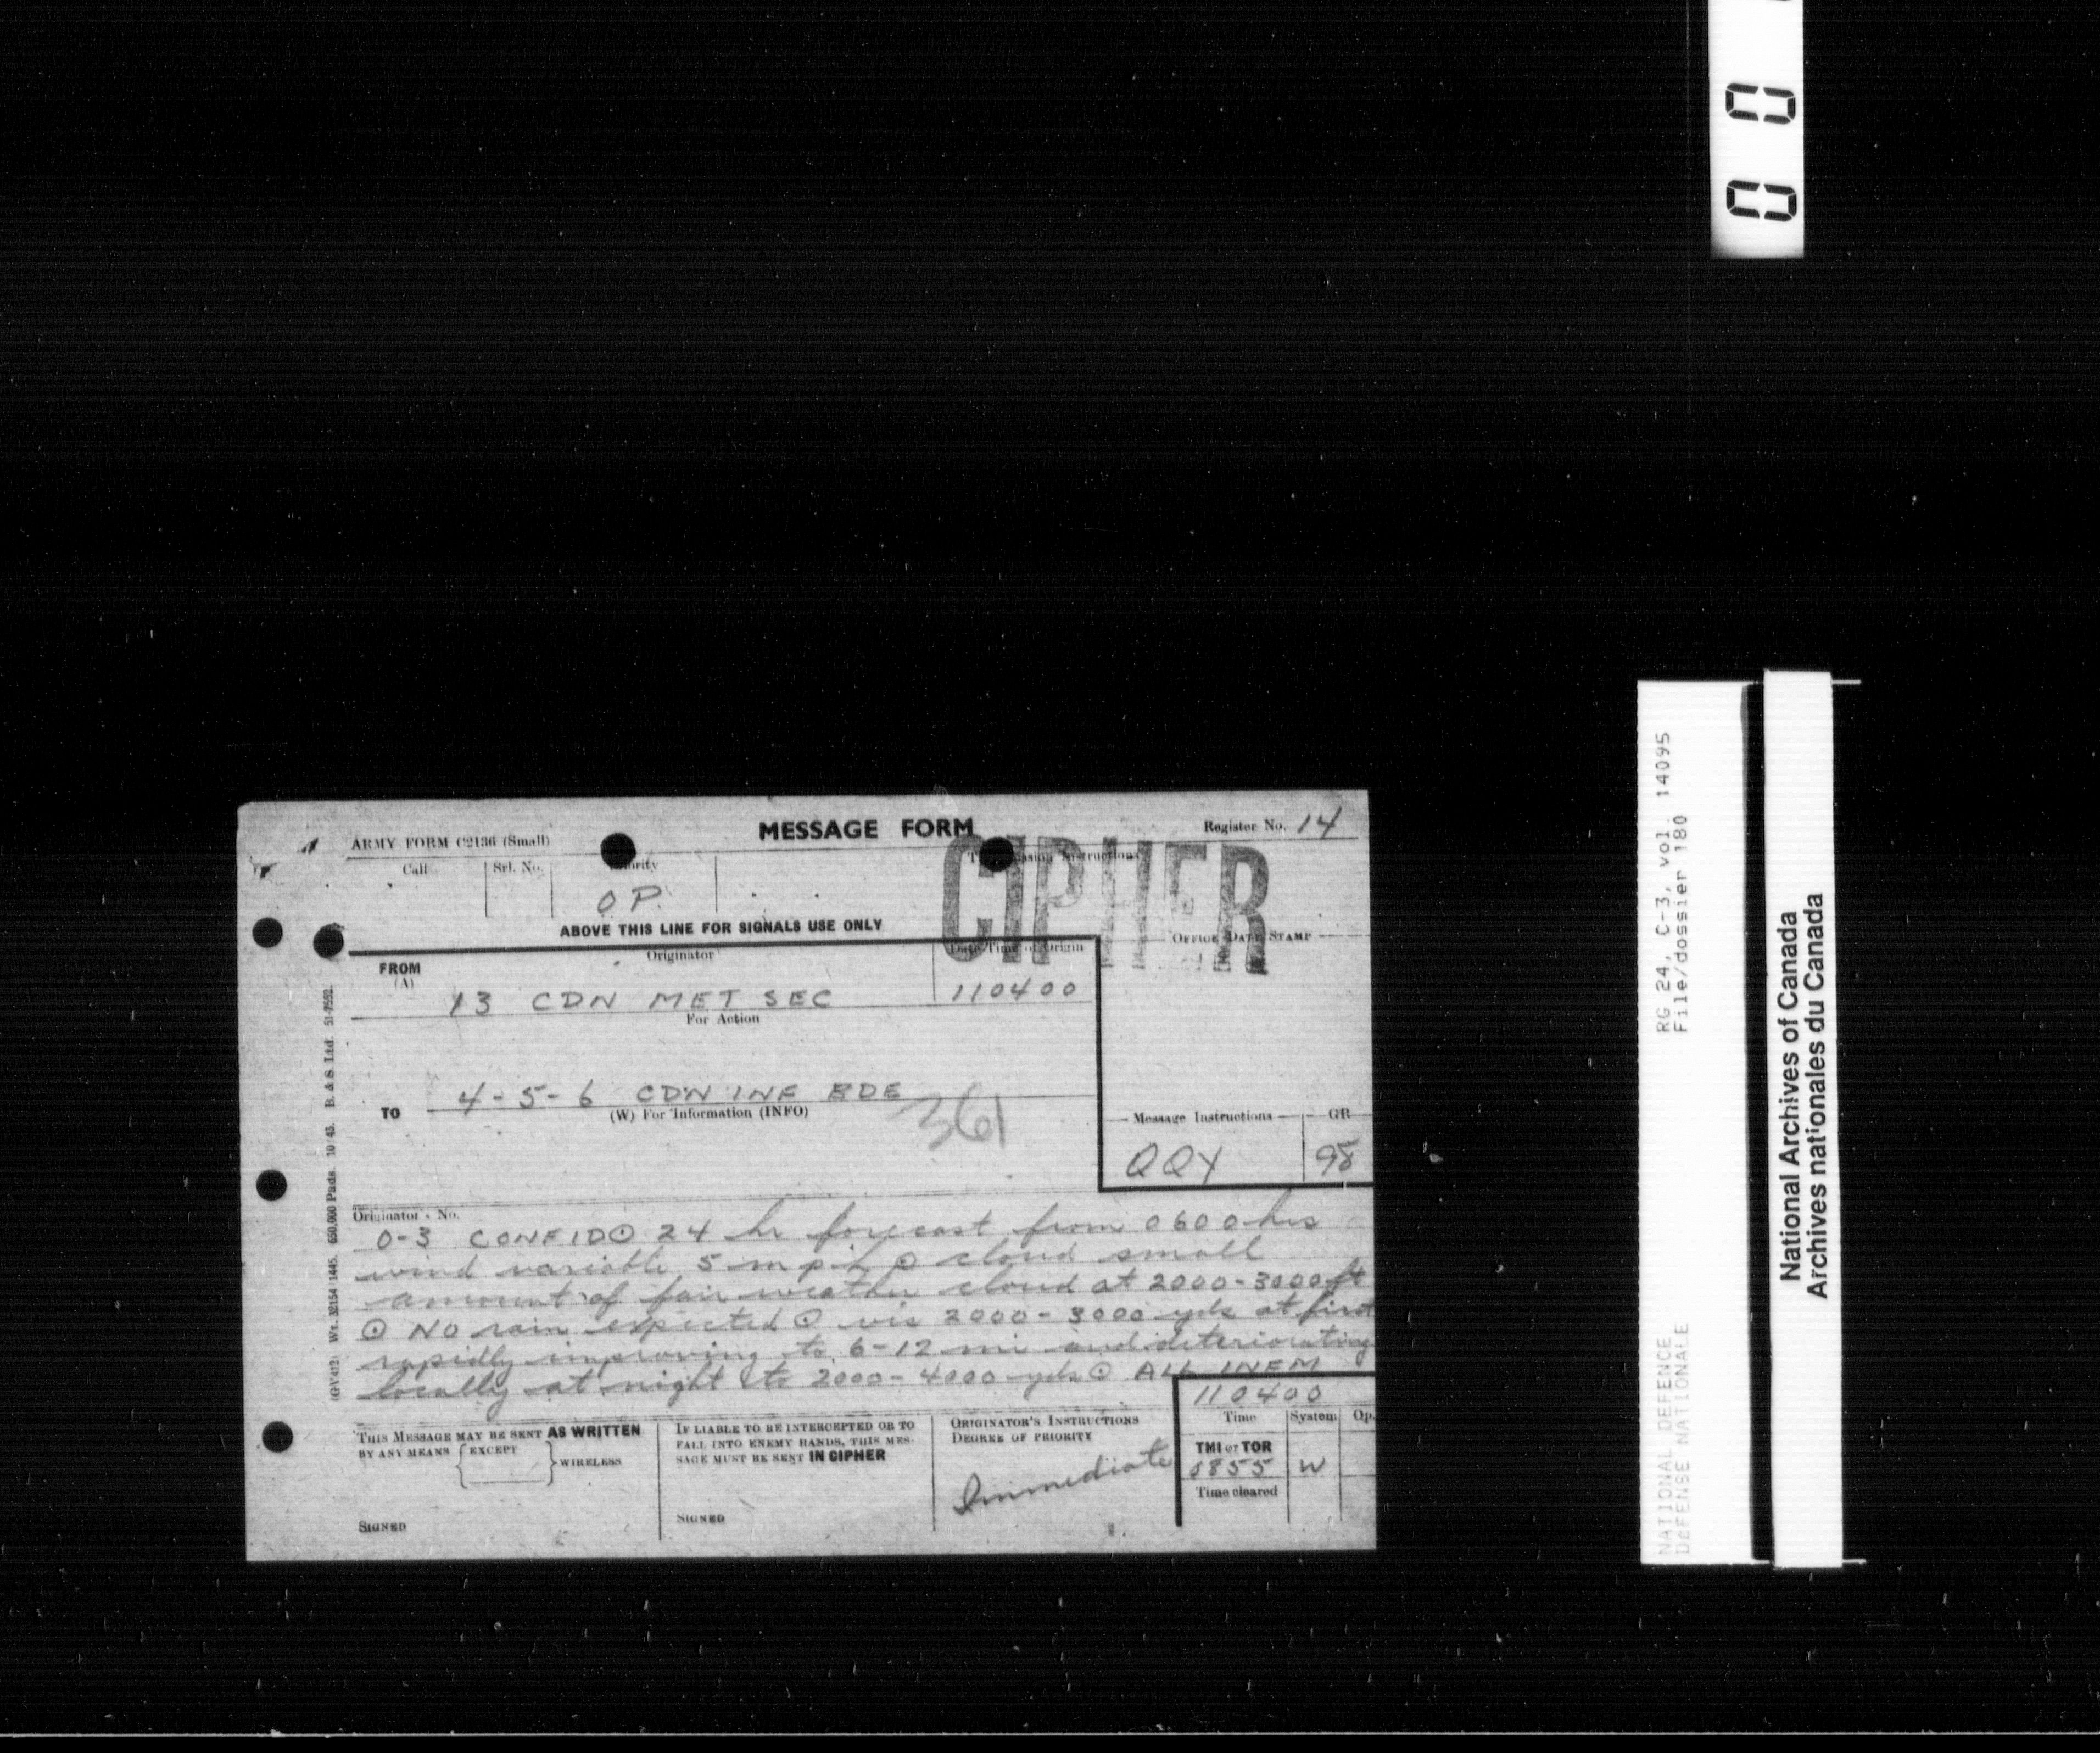 0 0
ARMY FORM C2136 (Small)
MESSAGE FORM
Register No. 14
Call
Srl. No.
OP
CIPHER
ABOVE THIS LINE FOR SIGNALS USE ONLY
OFFICE DATE STAMP
FROM
(A)
Originator
Date-Time of Origin
13 CDN MET SEC
110400
For Action
4-5-6 CDN INF BDE
TO
(W) For Information (INFO)
361
Message Instructions
GR
QQY
98
Originator's No.
0-3 CONFID ⊙ 24 hr forecast from 0600 hrs
wind variable 5 mph ⊙ cloud small
amount of fair weather cloud at 2000-3000 ft
⊙ NO rain expected ⊙ vis 2000-3000 yds at first
rapidly improving to 6-12 mi and deteriorating
locally at night to 2000-4000 yds ⊙ ALL INFM
110400
THIS MESSAGE MAY BE SENT AS WRITTEN
BY ANY MEANS { EXCEPT } WIRELESS
SIGNED
IF LIABLE TO BE INTERCEPTED OR TO
FALL INTO ENEMY HANDS, THIS MES-
SAGE MUST BE SENT IN CIPHER
SIGNED
ORIGINATOR'S INSTRUCTIONS
DEGREE OF PRIORITY
Immediate
Time
System
Op.
THI or TOR
0855
W
Time cleared
B. & S. Ltd. 51-7552.
RG 24, C-3, vol. 14095
File/dossier 180
NATIONAL DEFENCE
DEFENSE NATIONALE
National Archives of Canada
Archives nationales du Canada